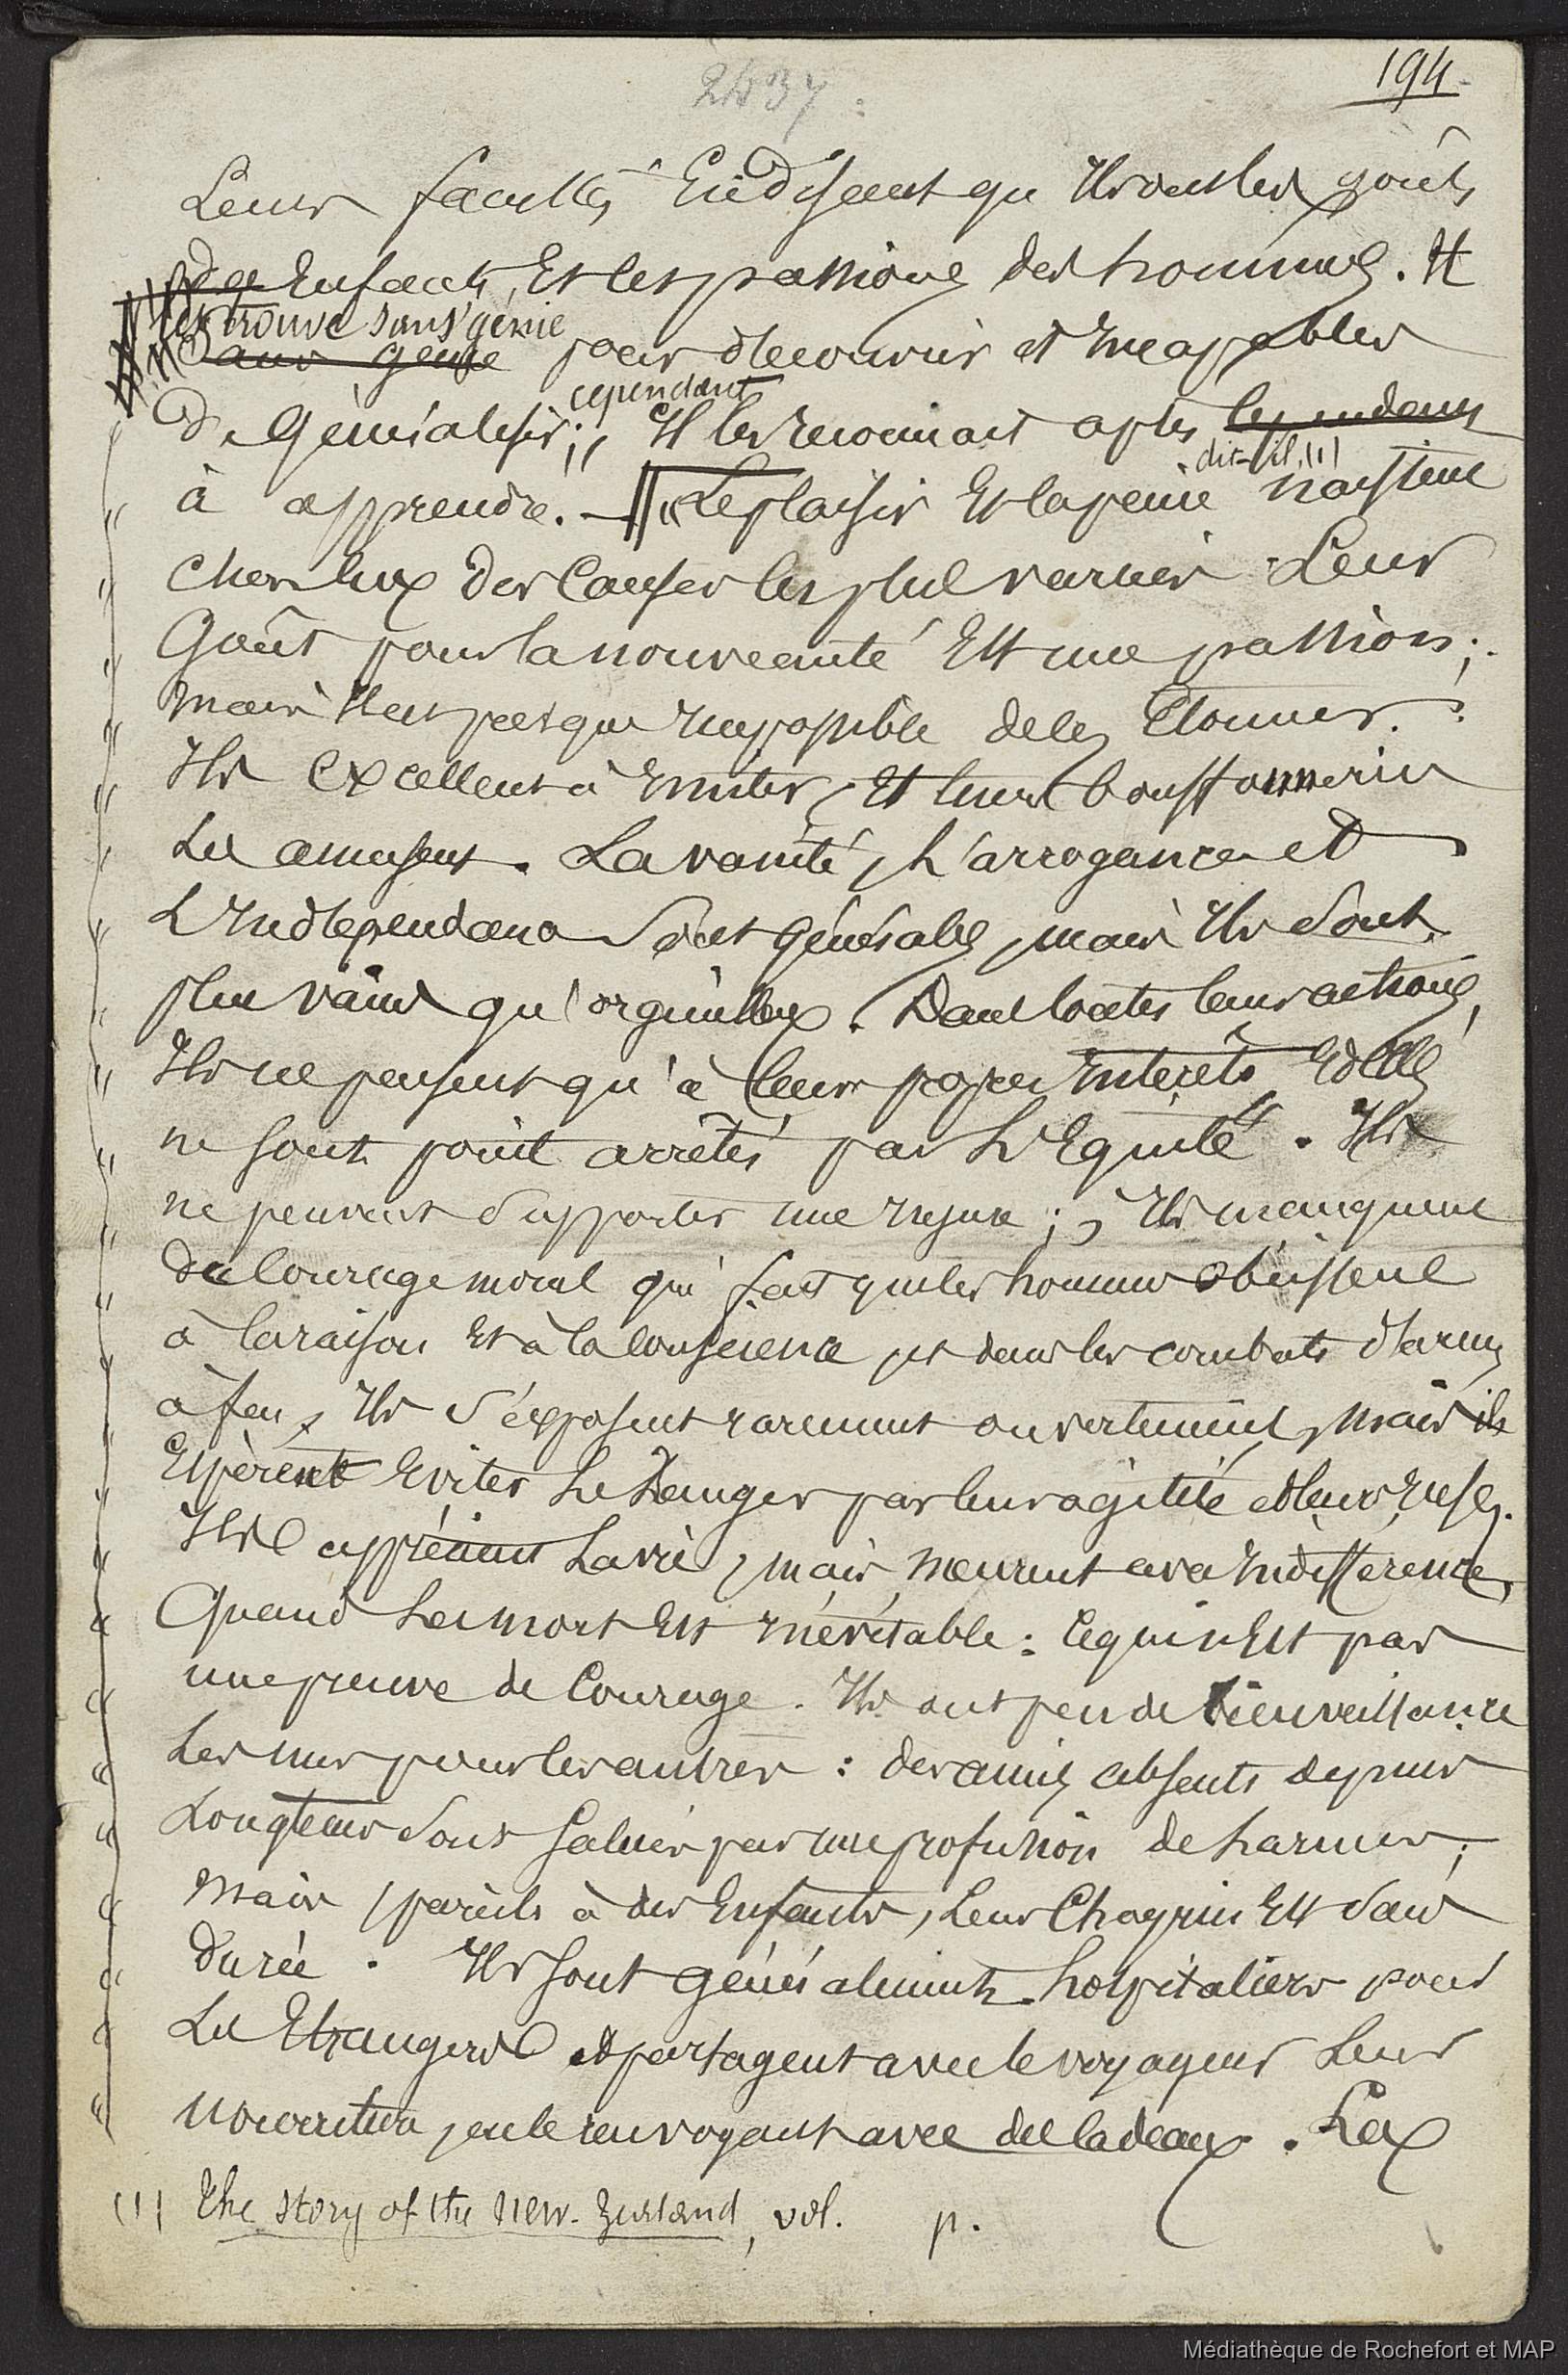 2437
194.
Leurs facultés en disant qu'ils ont les goûts
des Enfants, Et les passions des hommes. Il
les trouve sans génie
sans génie pour decouvrir et Incapables
cependant
De Généraliser; Il les reconnait aptes cependant
dit-il, (1)
à apprendre. — « Le plaisir Et la peine naissent
chez Eux des Causes les plus variées. Leur
Goût pour la nouveauté Est une passion;
Mais Il est presque Impossible de les Etonner.
Ils Excellent à Imiter, Et leurs bouffonneries
Les amusent. La vanité, L'arrogance et
L'Independance sont générales, mais Ils sont
plus vains qu'orgueilleux. Dans toutes leurs actions,
Ils ne pensent qu'à leurs propres Interêts, Et Elles
ne sont point arrêtés par L'Equité. Ils
ne peuvent supporter une Injure; Ils manquent
du Courage moral qui fait que les hommes obéissent
à la raison Et à la Conscience, et dans les combats d'armes
à feu, Ils s'exposent rarement ouvertement, Mais ils
Espèrent Eviter Le Danger par leur agilité et leurs ruses.
Ils apprécient La vie, mais meurent avec Indifférence,
Quand La mort Est Inévitable: Ce qui n'Est pas
une preuve de Courage. Ils ont peu de bienveillance
Les uns pour les autres: des amis absents depuis
Longtems sont salués par une profusion de larmes;
Mais, pareils à des Enfants, Leur Chagrin Est sans
Durée. Ils sont généralement hospitaliers pour
Les Etrangers et partagent avec le voyageur Leur
Nourriture, en le renvoyant avec des Cadeaux. Les
(1) The story of the New-Zealand, vol. p.
Médiathèque de Rochefort et MAP